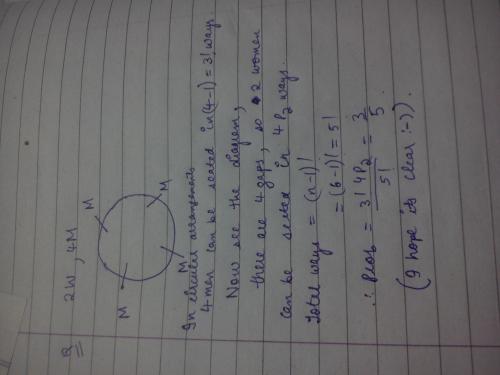 Q 2W, 4M
M
M
M
M
In circular arrangements
4 men can be seated in (4-1) = 3! ways
Now see the diagram,
there are 4 gaps, so 2 women
can be seated in 4P2 ways.
Total ways = (n-1)!
= (6-1)! = 5!
∴ Prob = 3! 4P2 / 5! = 3/5.
(I hope its clear :-)).